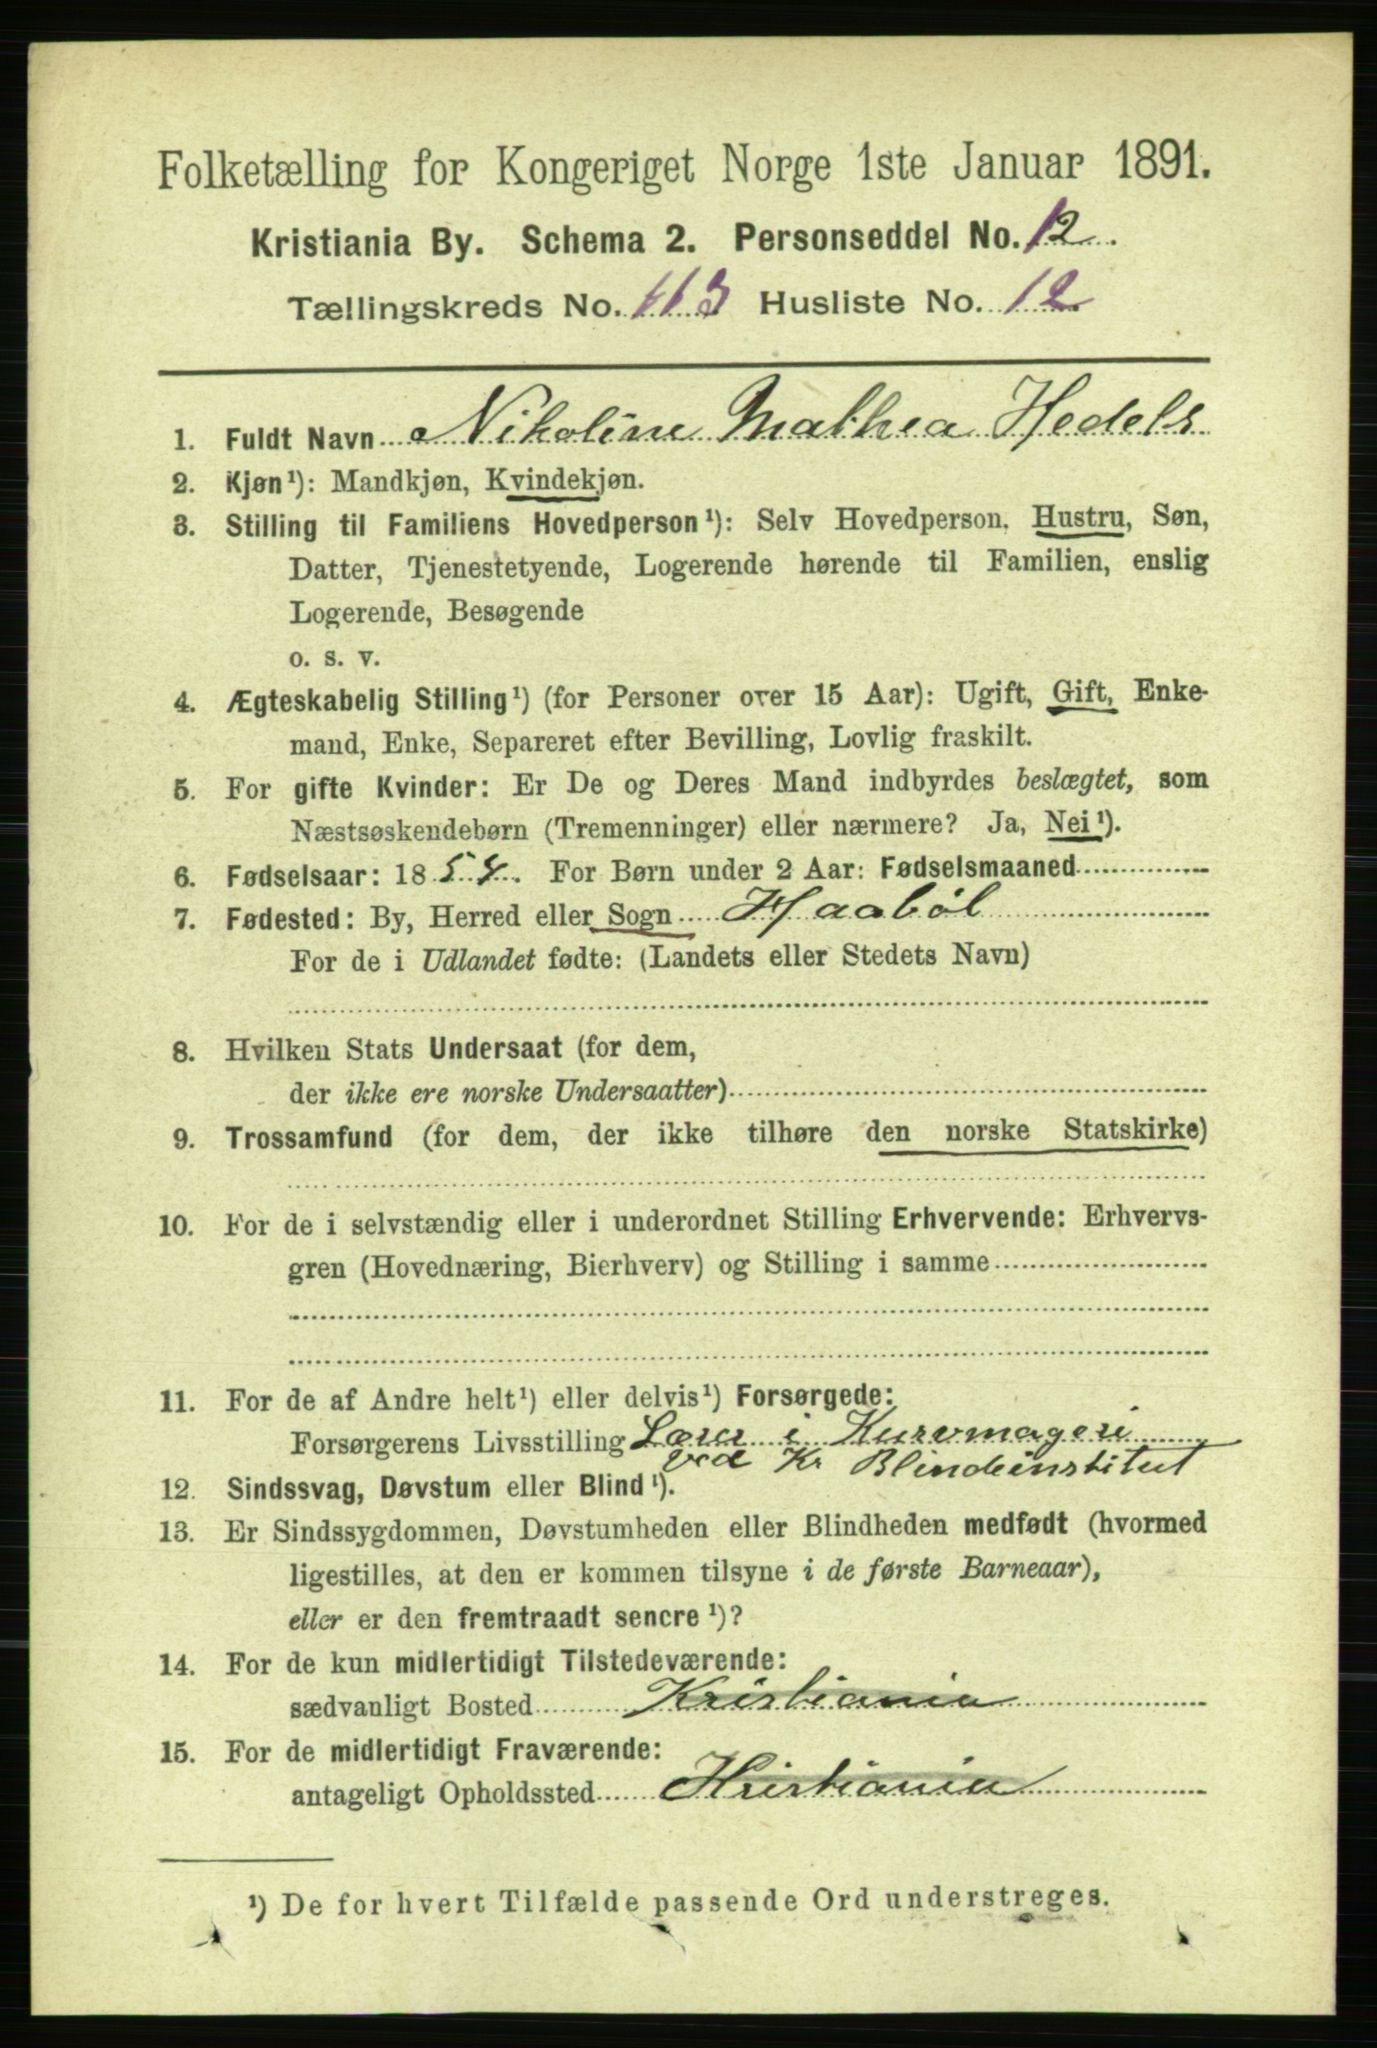 Folketælling for Kongeriget Norge 1ste Januar 1891.
Kristiania By. Schema 2. Personseddel No. 12.
Tællingskreds No. 113 Husliste No. 12.
1. Fuldt Navn Nikoline Mathea Hedels
2. Kjøn¹): Mandkjøn, Kvindekjøn.
3. Stilling til Familiens Hovedperson¹): Selv Hovedperson, Hustru, Søn,
Datter, Tjenestetyende, Logerende hørende til Familien, enslig
Logerende, Besøgende
o. s. v.
4. Ægteskabelig Stilling¹) (for Personer over 15 Aar): Ugift, Gift, Enke-
mand, Enke, Separeret efter Bevilling, Lovlig fraskilt.
5. For gifte Kvinder: Er De og Deres Mand indbyrdes beslægtet, som
Næstsøskendebørn (Tremenninger) eller nærmere? Ja, Nei¹).
6. Fødselsaar: 1854. For Børn under 2 Aar: Fødselsmaaned
7. Fødested: By, Herred eller Sogn Haabøl
For de i Udlandet fødte: (Landets eller Stedets Navn)
8. Hvilken Stats Undersaat (for dem,
der ikke ere norske Undersaatter)
9. Trossamfund (for dem, der ikke tilhøre den norske Statskirke)
10. For de i selvstændig eller i underordnet Stilling Erhvervende: Erhvervs-
gren (Hovednæring, Bierhverv) og Stilling i samme
11. For de af Andre helt¹) eller delvis¹) Forsørgede:
Forsørgerens Livsstilling Lærer i Kurvmageri
ved Kr Blindeinstitut
12. Sindssvag, Døvstum eller Blind¹).
13. Er Sindssygdommen, Døvstumheden eller Blindheden medfødt (hvormed
ligestilles, at den er kommen tilsyne i de første Barneaar),
eller er den fremtraadt senere¹)?
14. For de kun midlertidigt Tilstedeværende:
sædvanligt Bosted Kristiania
15. For de midlertidigt Fraværende:
antageligt Opholdssted Kristiania
¹) De for hvert Tilfælde passende Ord understreges.